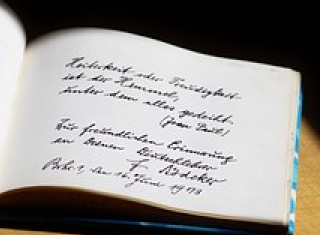 Heiterkeit oder Freudigkeit
ist der Himmel,
unter dem alles gedeiht.
(Jean Paul.)
Zur freundlichen Erinnerung
an Deinen Deutschlehrer
den 16. Juni 1978